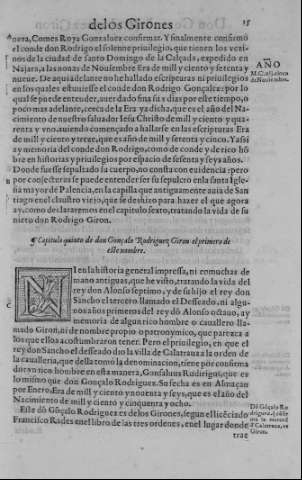 de los Girones
15
noera, Comes Roya Gonzaluez confirmat. Y finalmente confirmó
el conde don Rodrigo el solenne priuilegio, que tienen los vezi-
nos de la ciudad de santo Domingo de la Calçada, expedido en
Najara, a las nonas de Nouiembre Era de mill y ciento y setenta y
nueue. De aqui adelante no he hallado escripturas ni priuilegios
en los quales estuuiesse el conde don Rodrigo Gonçalez: por lo
qual se puede entender, auer dado fin a sus dias por este tiempo, o
poco mas adelante, cerca de la Era ya dicha, que es el año del Na-
cimiento de nuestro saluador Iesu Christo de mill y ciento y qua-
renta y vno, auiendo començado a hallarse en las escripturas Era
de mill y ciento y treze, que es año de mill y setenta y cinco. Y assi
ay memoria del conde don Rodrigo, como de conde y de rico hõ
bre en historias y priuilegios por espacio de sesenta y seys años.
Donde fuesse sepultado su cuerpo, no consta con euidencia: pero
por conjecturas se puede entender ser su sepulcro en la santa Igle-
sia mayor de Palencia, en la capilla que antiguamente auia de san-
tiago en el claustro viejo, que se deshizo para hazer el que agora
ay, como declararemos en el capitulo sexto, tratando la vida de su
nieto don Rodrigo Giron.
AÑO
¶ Capitulo quinto de don Gonçalo Rodriguez Giron el primero de
este nombre.
NI en la historia general impressa, ni en muchas de
mano antiguas, que he visto, tratando la vida del
rey don Alonso septimo, y de su hijo el rey don
Sancho el tercero llamado el Desseado, ni algu-
nos años primeros del rey dõ Alonso octauo, ay
memoria de algun rico hombre o cauallero lla-
mado Giron, ni de nombre propio o patronymico, que parezca a
los que ellos acostumbraron tener. Pero el priuilegio, en que el
rey don Sancho el desseado dio la villa de Calatraua a la orden de
la caualleria, que della tomó la denominacion, tiene por confirma
dor vn rico hombre en esta manera, Gonsaluus Rudirigui, que es
lo mismo que don Gonçalo Rodriguez. Su fecha es en Almaçan
por Enero, Era de mill y ciento y nouenta y seys, que es el año del
Nacimiento de mill y ciento y cinquenta y ocho.
Este dõ Gõçalo Rodriguez es de los Girones, segun el licẽciado
Francisco Rades en el libro de las tres ordenes, en el lugar donde
trae
Dõ Gõçalo Ro
Giron.